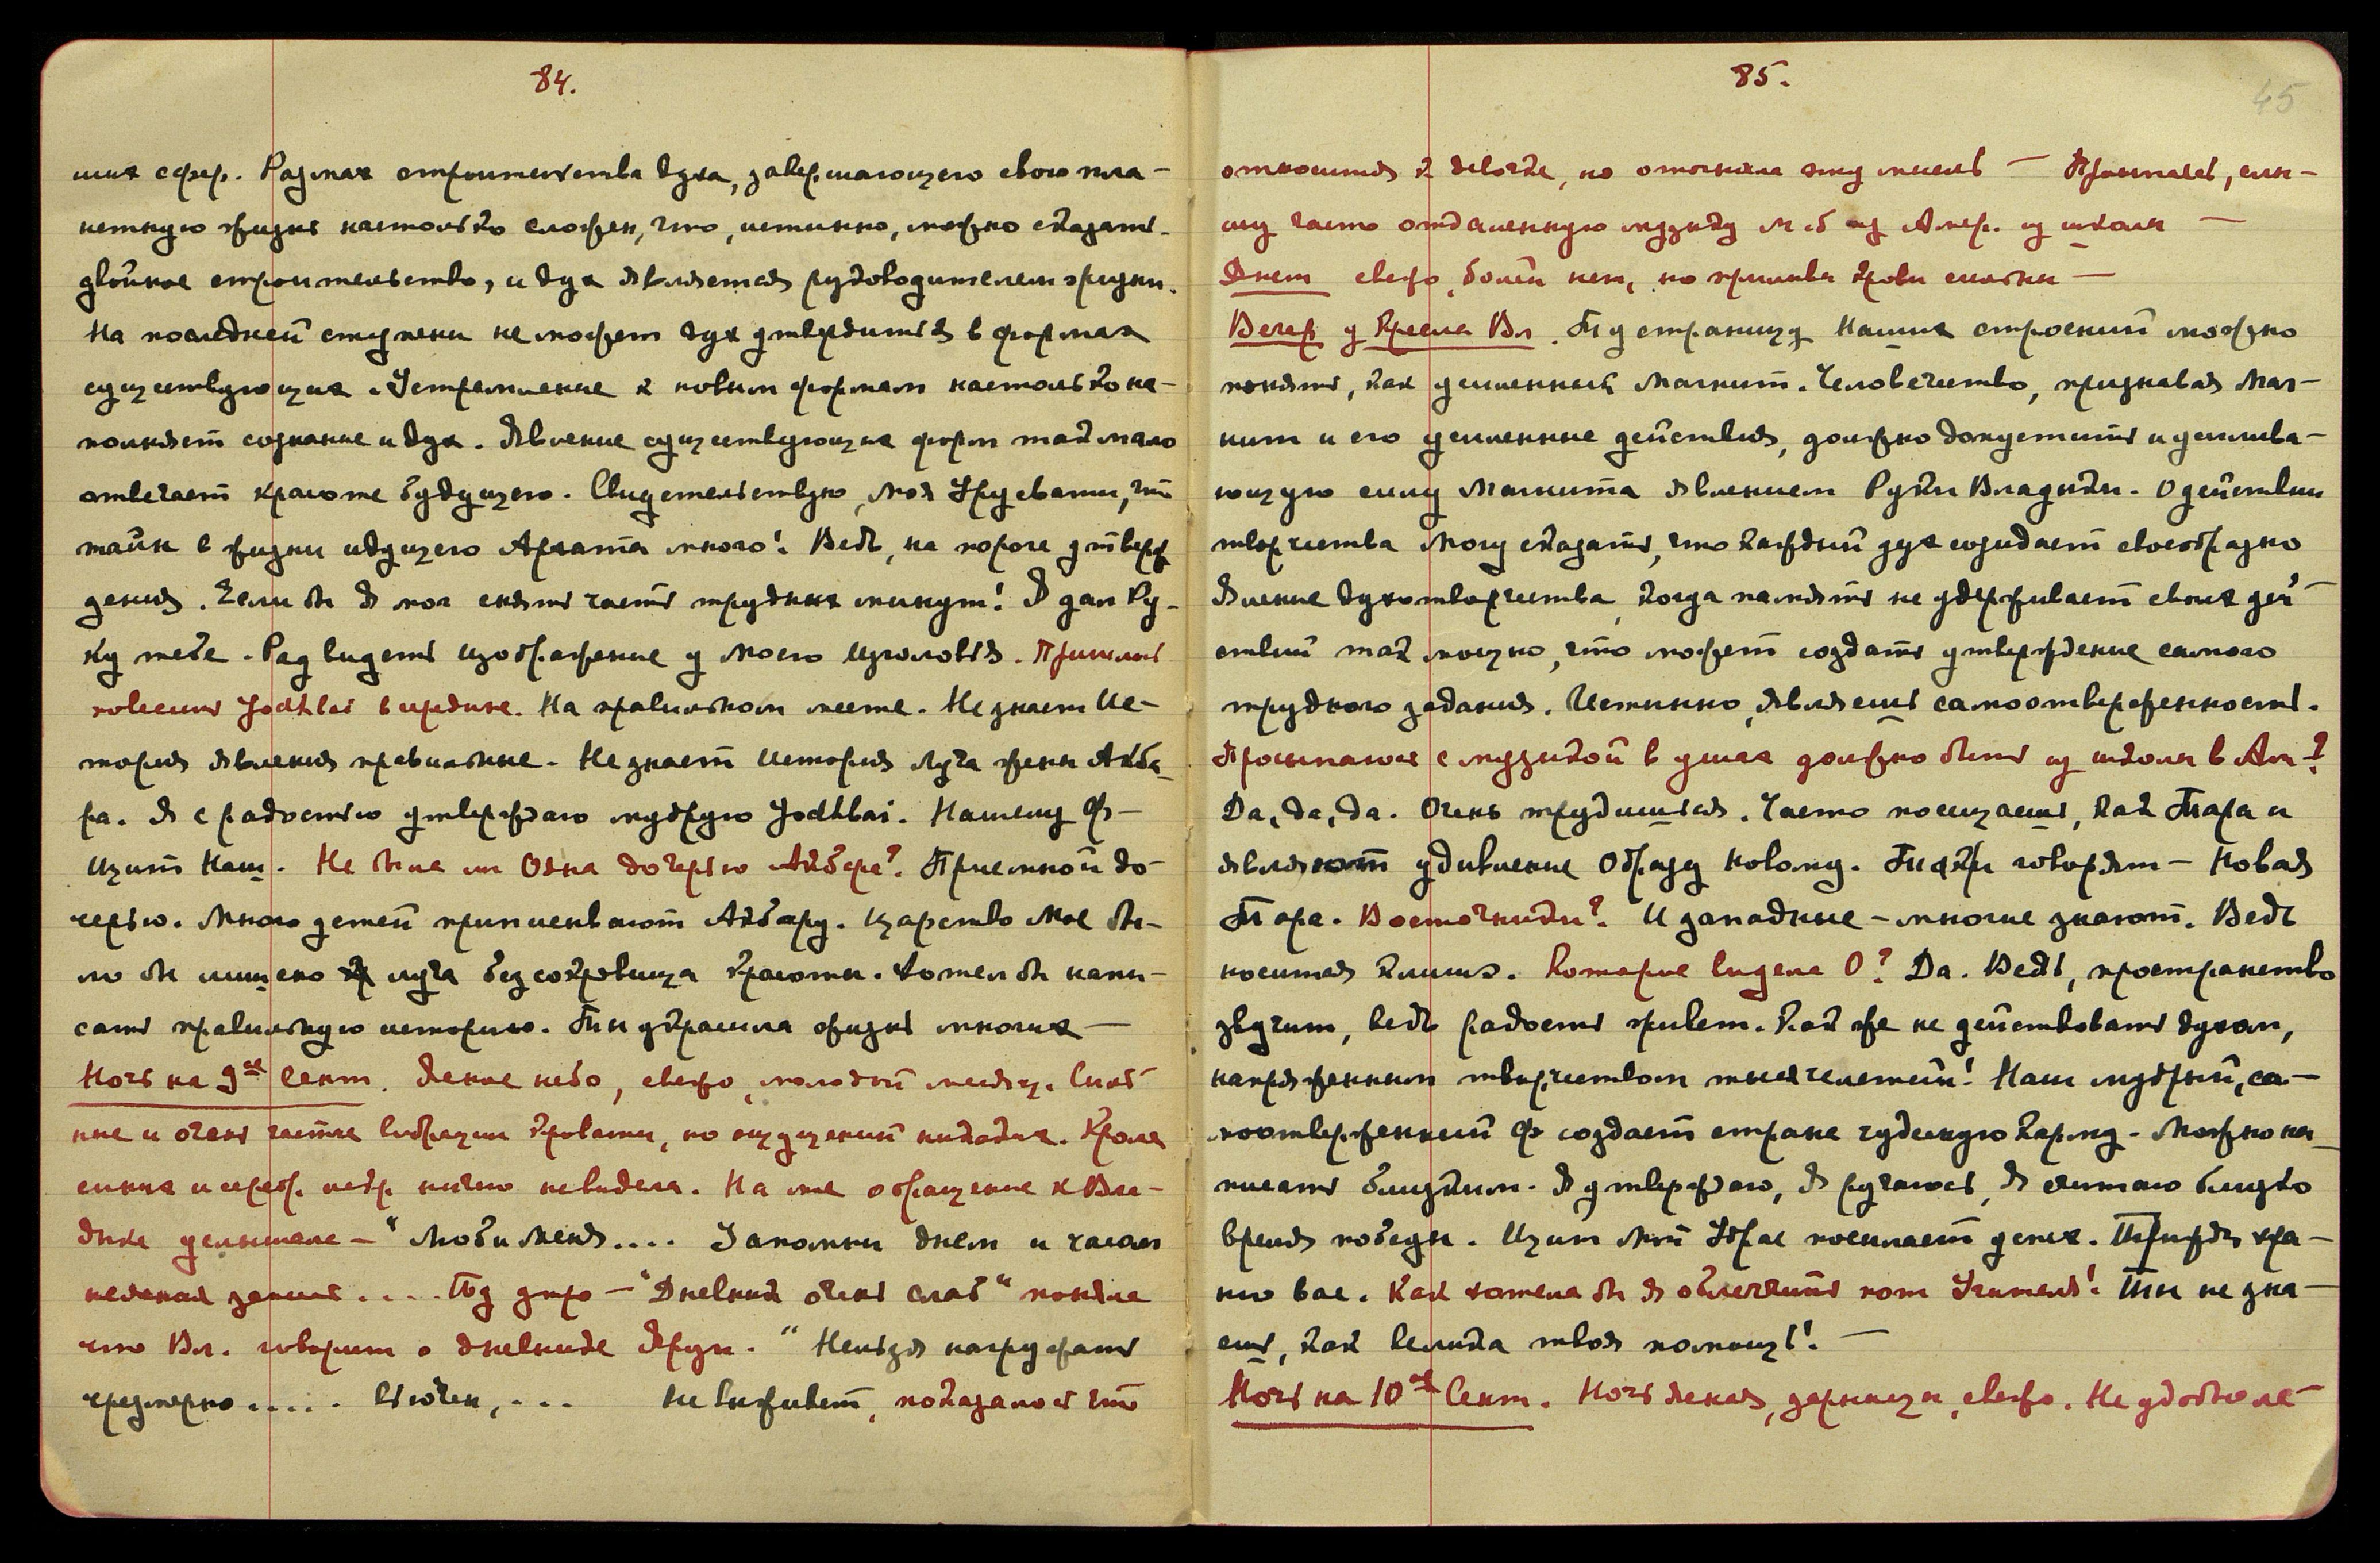 84.
ших сфер. Размах строительства духа, завершающего свою пла-
нетную жизнь настолько сложен, что, истинно, можно сказать -
двойное строительство, и дух является руководителем жизни.
На последней ступени не может дух утвердиться в формах
существующих. Устремление к новым формам настолько на-
полняет сознание и дух. Явление существующих форм так мало
отвечает красоте будущего. Свидетельствую, моя Урусвати, что
тайн в жизни идущего Архата много! Ведь, на пороге утверж
дения. Если бы Я мог снять часть трудных минут! Я дал Ру-
ку тебе. Рад видеть изображение у моего изголовья. Пришлось
повесить Jodhbai в средине. На правильном месте. Не знает Ис-
тория явления правильные. Не знает История луча жены Акба-
ра. Я с радостью утверждаю мудрую Jodhbai. Нашему Ф -
Щит Наш. Не была ли Ояна дочерью Акбара? Приемной до-
черью. Много детей приписывают Акбару. Царство Мое бы-
ло бы лишено луча без сокровища красоты. Хотел бы напи-
сать правильную историю. Ты украшала жизнь многих —
Ночь на 9ое Сент. Ясное небо, свежо, молодой месяц. Силь
ные и очень частые вибрации кровати, но ощущений никаких. Кроме
синих и сереб. искр ничего не видела. На мое обращение к Вла-
дыке услышала - "Люби Меня.... Запомни днем и часом
неясная запись.... Под утро — "Дневник очень слаб" поняла
что Вл. говорит о дневнике Яруи. "Нельзя нагружать
чрезмерно..... ... не выживет, показалось что
85.
45
относится к девочке, но отогнала эту мысль — Просыпаясь, слы-
шу часто отдаленную музыку м.б из Амер. из школы —
Днем свежо, болей нет, но приливы крови сильны —
Вечер у Кресла Вл. Ту страницу Наших строений можно
понять, как усиленный Магнит. Человечество, признавая Маг-
нит и его усиленные действия, должно допустить и усилива-
ющую силу Магнита явлением Руки Владыки. О действии
творчества Могу сказать, что каждый дух созидает своеобразно
Явление духотворчества, когда память не удерживает своих дей
ствий так мощно, что может создать утверждение самого
трудного задания. Истинно, являешь самоотверженность.
Просыпаюсь с музыкой в ушах должно быть из школы в Ам?
Да, да, да. Очень трудишься. Часто посещаешь, как Тара и
являют удивление Образу новому. говорят — Новая
Тара. Восточники? И западные - многие знают. Ведь
носится клише. Которые видела О? Да. Ведь, пространство
звучит, ведь радость живет. Как же не действовать духом,
напряженным творчеством тысячелетий! Наш мудрый, са-
моотверженный Ф создает стране чудесную карму. Можно на-
писать близким. Я утверждаю, Я ручаюсь, Я считаю близко
время победы. Щит Мой Удрае посылает успех. Трижды хра-
ню вас. Как хотела бы я облегчить пот Учителя! Ты не зна-
ешь, как велика твоя помощь! —
Ночь на 10ое Сент. Ночь ясная, зарницы, свежо. Не удобно ле-